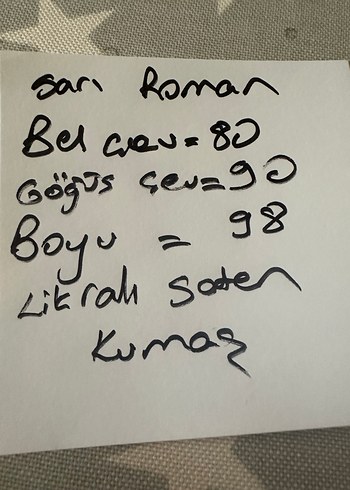 Sarı Roman
Bel çev = 80
Göğüs çev = 90
Boyu = 98
Likralı Saten
Kumaş